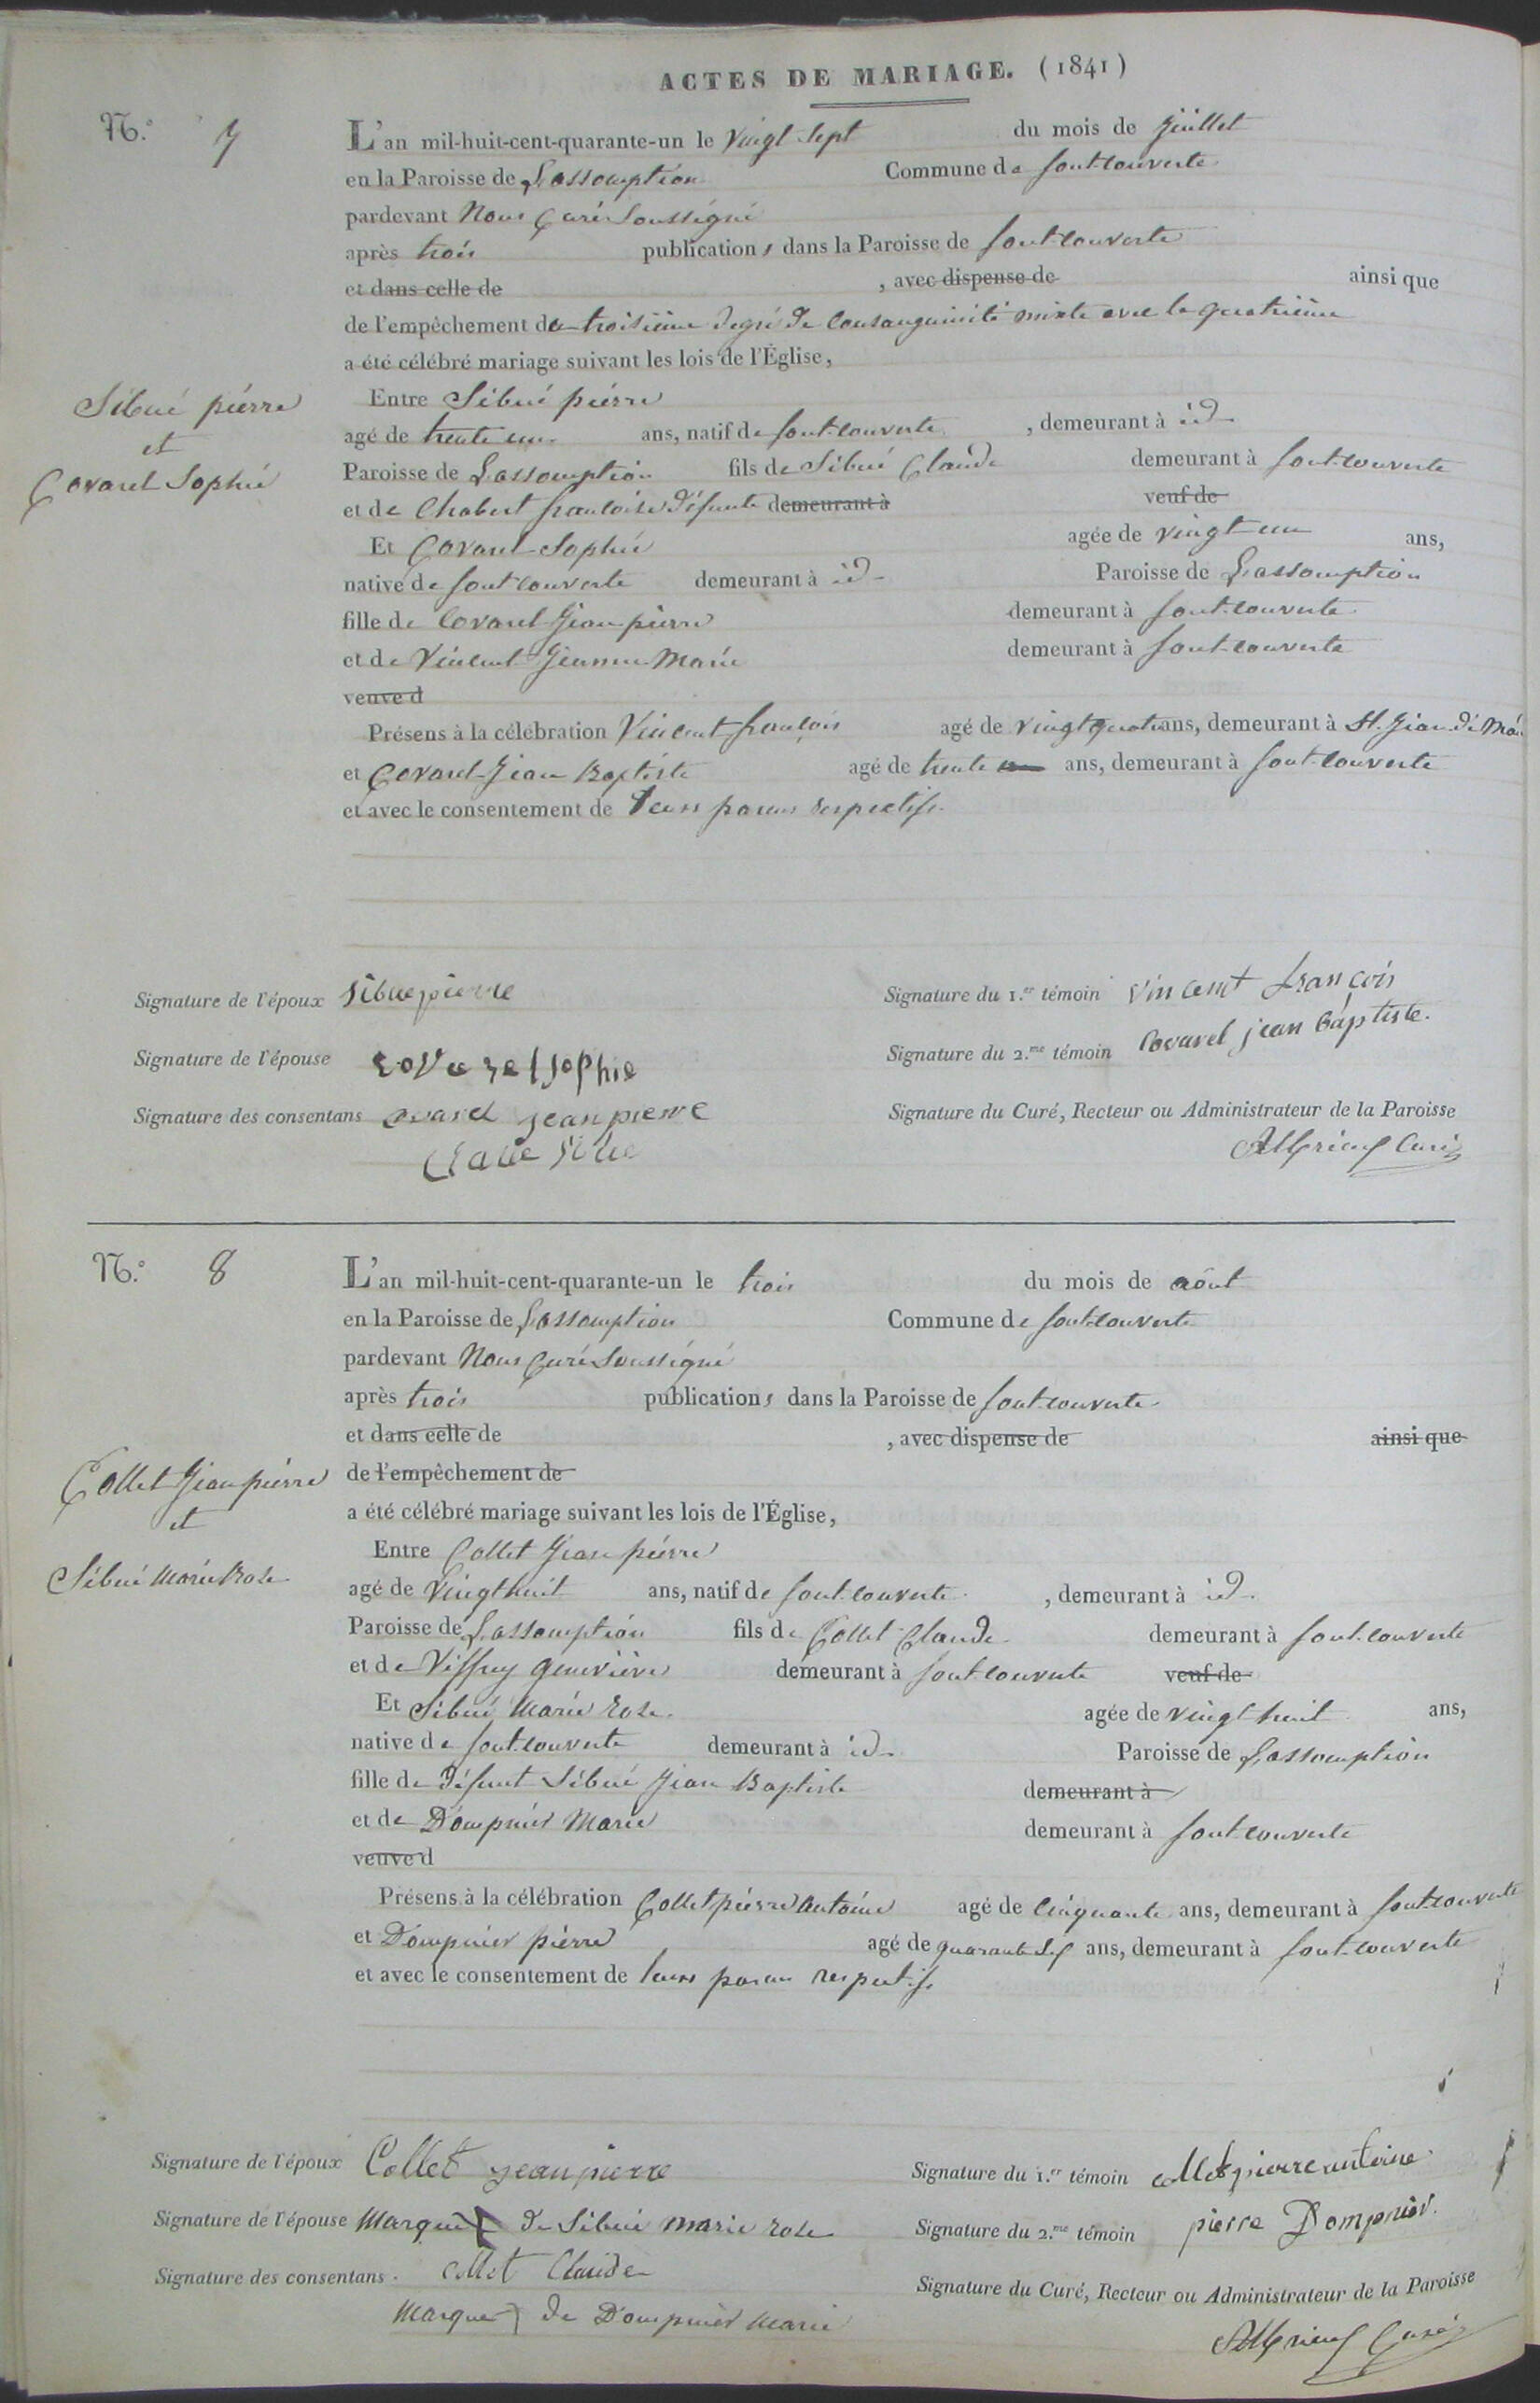 ACTES DE MARIAGE. (1841)
N.° 7
L'an mil-huit-cent-quarante-un le vingt sept du mois de juillet
en la Paroisse de L'assomption Commune de fontcouverte
pardevant Nous Curé Soussigné
après trois publications dans la Paroisse de fontcouverte
et dans celle de , avec dispense de ainsi que
de l'empêchement de troisième degré de consanguinité mixte avec le quatrième
a été célébré mariage suivant les lois de l'Église,
Sibué pierre
et
Covarel Sophie
Entre Sibué pierre
agé de trente un ans, natif de fontcouverte , demeurant à id
Paroisse de L'assomption fils de Sibué Claude demeurant à fontcouverte
et de Chabert francoise défunte demeurant à veuf de
Et Covarel Sophie agée de vingt un ans,
native de fontcouverte demeurant à id Paroisse de L'assomption
fille de Covarel Jean pierre demeurant à fontcouverte
et de Vincent Jeanne Marie demeurant à fontcouverte
veuve d
Présens à la célébration Vincent françois agé de vingt quatre ans, demeurant à St. Jean de
et Covarel Jean Baptiste agé de trente ans, demeurant à fontcouverte
et avec le consentement de leurs parens respectifs
Signature de l'époux Sibue pierre
Signature du 1.er témoin vincent françois
Signature de l'épouse covarel sophie
Signature du 2.me témoin Covarel jean baptiste.
Signature des consentans covarel jean pierre
Signature du Curé, Recteur ou Administrateur de la Paroisse
Curé
N.° 8
L'an mil-huit-cent-quarante-un le trois du mois de août
en la Paroisse de L'assomption Commune de fontcouverte
pardevant Nous Curé Soussigné
après trois publications dans la Paroisse de fontcouverte
et dans celle de , avec dispense de ainsi que
de l'empêchement de
a été célébré mariage suivant les lois de l'Église,
Collet Jean pierre
et
Sibué Marie Rose
Entre Collet Jean pierre
agé de vingt huit ans, natif de fontcouverte , demeurant à id
Paroisse de L'assomption fils de Collet Claude demeurant à fontcouverte
et de Viffrey geneviève demeurant à fontcouverte veuf de
Et Sibué Marie rose agée de vingt huit ans,
native de fontcouverte demeurant à id Paroisse de L'assomption
fille de défunt Sibué Jean Baptiste demeurant à
et de Dompnier Marie demeurant à fontcouverte
veuve d
Présens à la célébration Collet pierre Antoine agé de cinquante ans, demeurant à fontcouverte
et Dompnier pierre agé de quarante ans, demeurant à fontcouverte
et avec le consentement de leurs parens respectifs
Signature de l'époux Collet jean pierre
Signature du 1.er témoin collet pierre antoine
Signature de l'épouse Marque de Sibué marie rose
Signature du 2.me témoin pierre Dompnier.
Signature des consentans. collet Claude
Signature du Curé, Recteur ou Administrateur de la Paroisse
Marque de Dompnier Marie
Curé